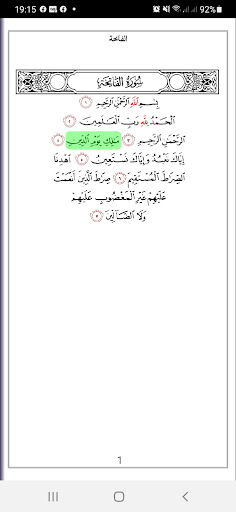 19:15 92%
الفاتحة
سُورَةُ الفَاتِحَةِ
بِسْمِ ٱللَّهِ ٱلرَّحْمَٰنِ ٱلرَّحِيمِ ١
ٱلْحَمْدُ لِلَّهِ رَبِّ ٱلْعَٰلَمِينَ ٢
ٱلرَّحْمَٰنِ ٱلرَّحِيمِ ٣ مَٰلِكِ يَوْمِ ٱلدِّينِ ٤
إِيَّاكَ نَعْبُدُ وَإِيَّاكَ نَسْتَعِينُ ٥ ٱهْدِنَا
ٱلصِّرَٰطَ ٱلْمُسْتَقِيمَ ٦ صِرَٰطَ ٱلَّذِينَ أَنْعَمْتَ
عَلَيْهِمْ غَيْرِ ٱلْمَغْضُوبِ عَلَيْهِمْ
وَلَا ٱلضَّآلِّينَ ٧
1